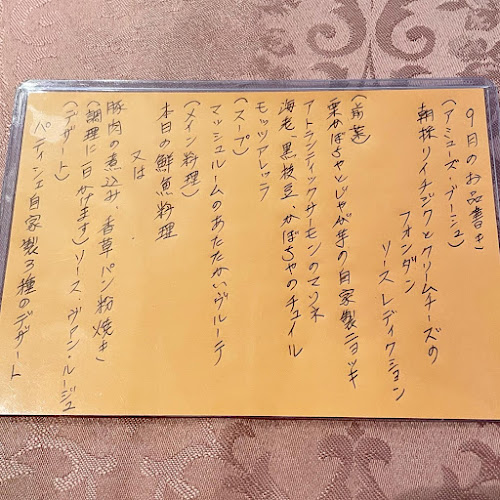 9月のお品書き
(アミューズ・ブーシュ)
朝採りイチジクとクリームチーズの
フォンダン
ソースレディクション
(前菜)
栗かぼちゃとじゃが芋の自家製ニョッキ
アトランティックサーモンのマリネ
海老、黒枝豆、かぼちゃのチュイル
モッツアレッラ
(スープ)
マッシュルームのあたたかいヴルーテ
(メイン料理)
本日の鮮魚料理
又は
豚肉の煮込み・香草パン粉焼き
(調理に一日かけます)ソース・ヴァン・ルージュ
(デザート)
パティシエ自家製3種のデザート